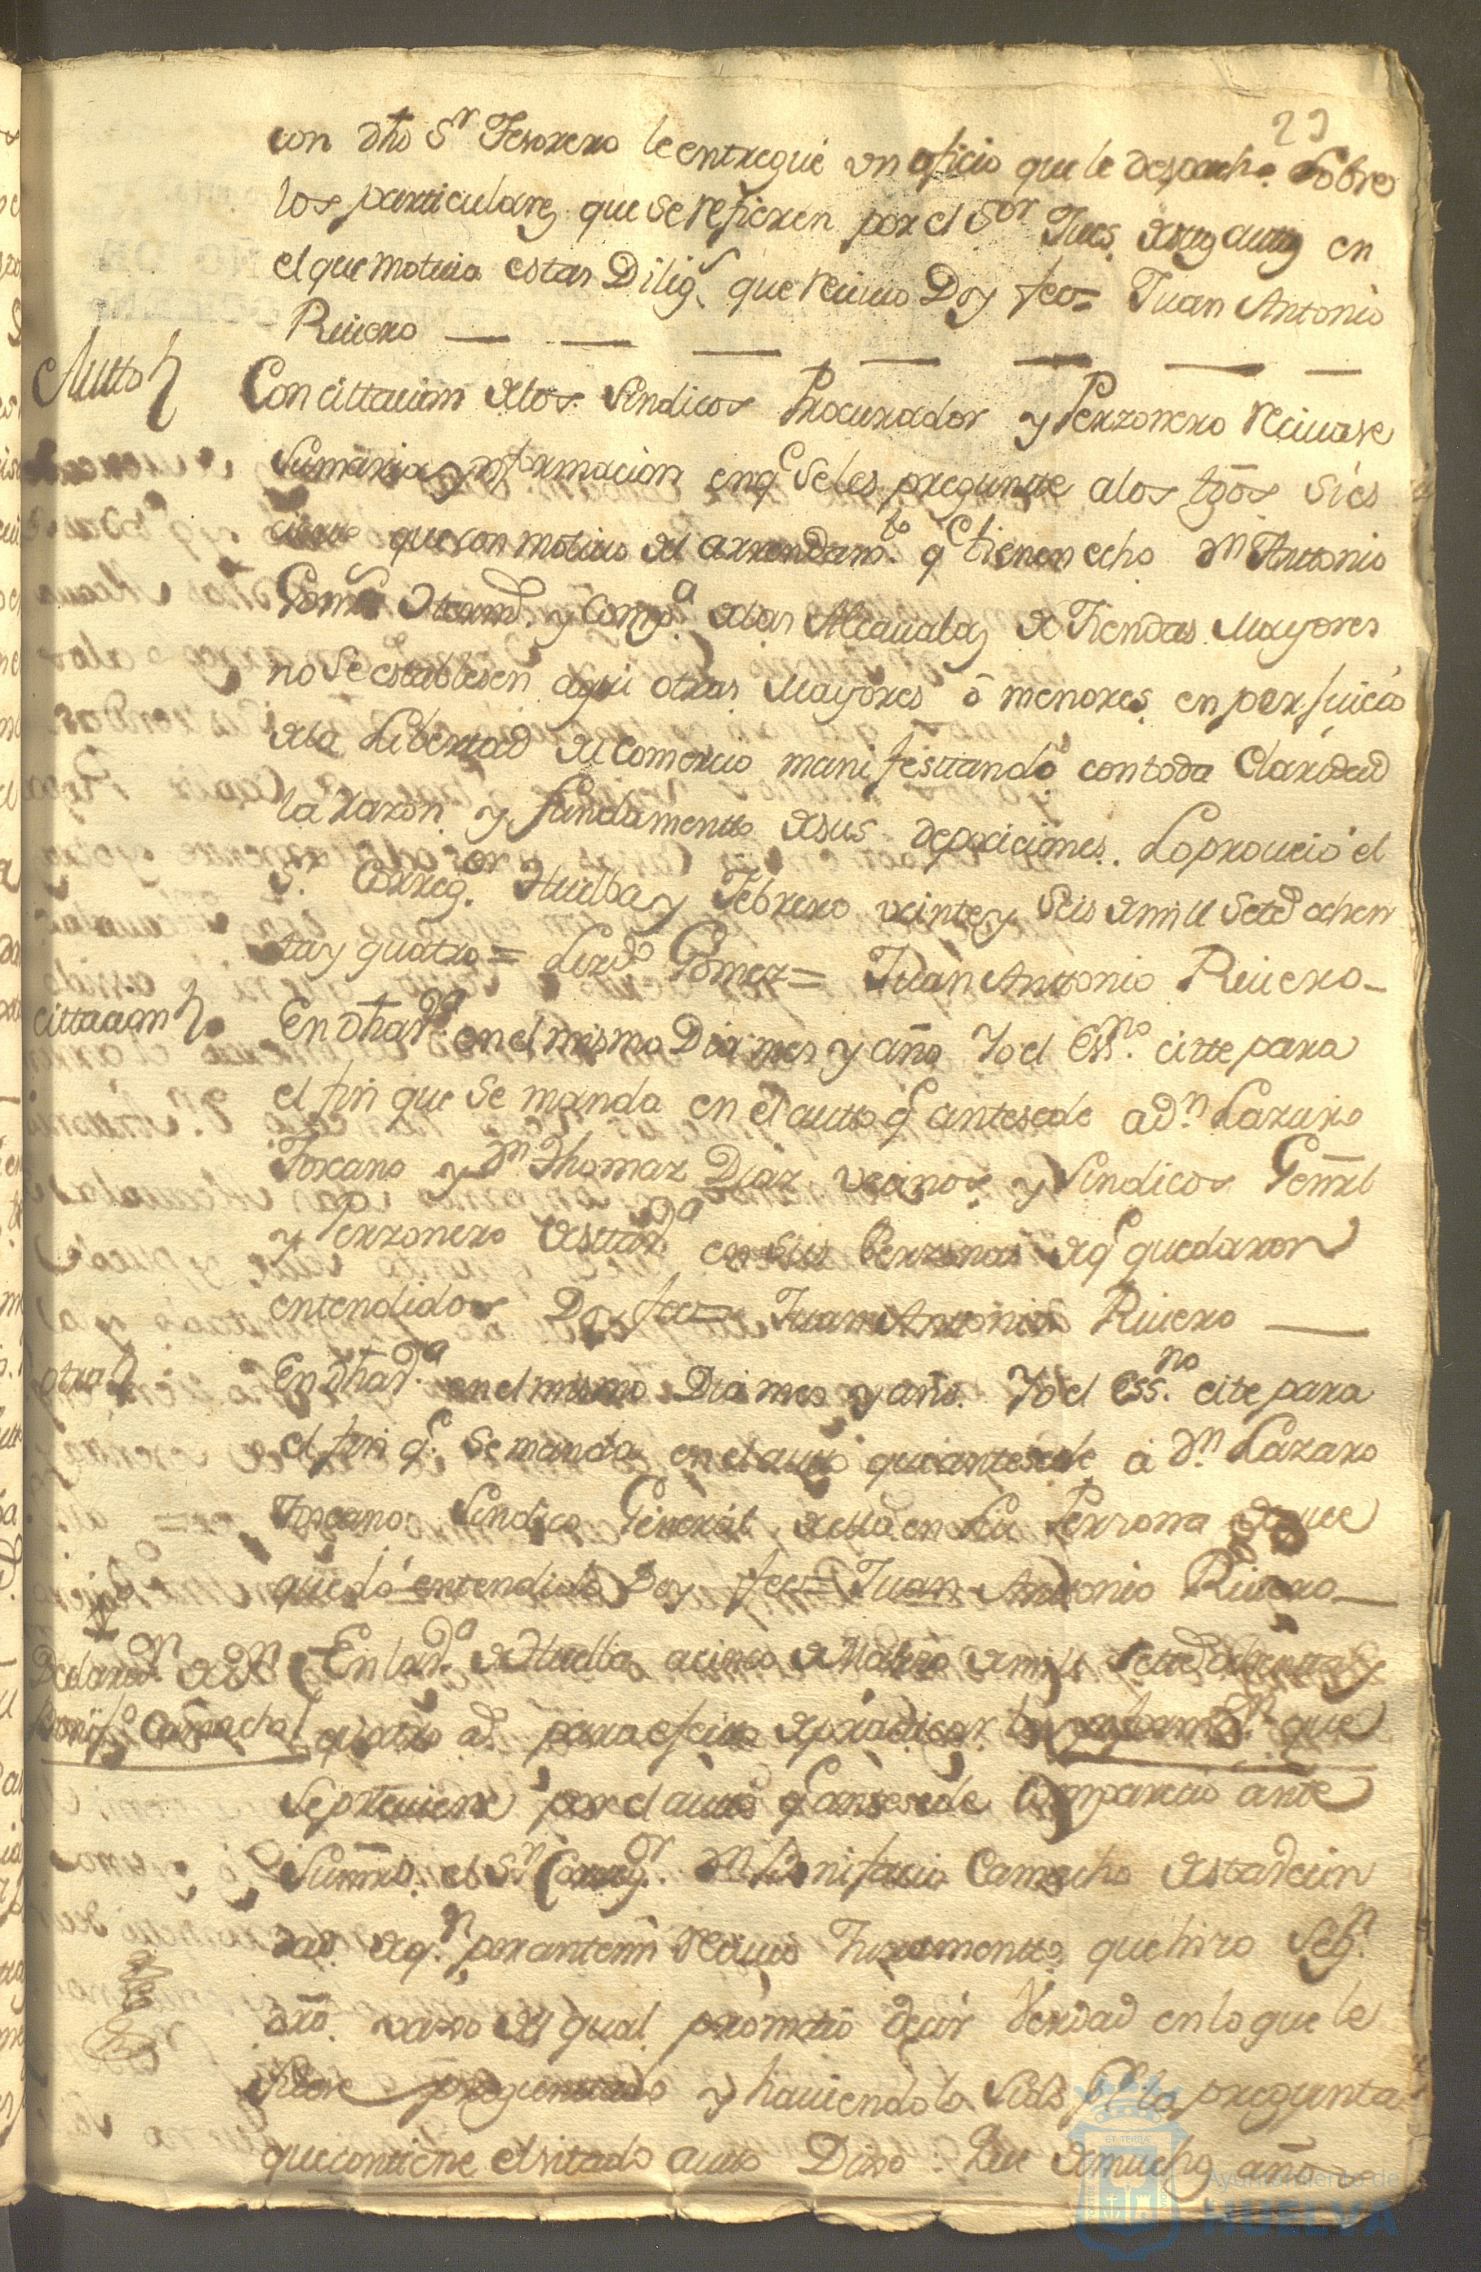 29
con dho Sr Tesorero le entregué un oficio que le despacho sobre
los particulares que se refieren por el Sor Jues de sus auttos en
el que motiva estas Diligs que reciuio Doy fee = Juan Antonio
Riuero
Autto
Con cittacion de los Sindicos Procurador y Perzonero reciuase
sumaria ynformacion en qe se les pregunte a los tgos si es
cierto que con motiuo del arrendamto qe tienen echo Dn Anttonio
Gomes y Compa de las Alcaualas de Tiendas Mayores
no se establesen aqui otras Mayores ó menores en perjuicio
de la Libertad del Comercio manifesttando con toda Claridad
la razon y fundamentto de sus depociciones. Lo proueió el
Sr Correxor Huelba y Febrero veinte y seis de mill seted ochen
ta y quatro = Licdo Gomez = Juan Anttonio Riuero
cittacion
En dha va en el mismo Dia mes y año Yo el Essno citte para
el fin que se manda en el autto q antesede a dn Lazaro
Toscano y Dn Thomas Diaz vecinos y Sindicos Genrl
y Perzonero desttava en sus Perzonas de q quedaron
entendidos Doy fee = Juan Antonio Riuero
otra
En dha va en el mismo Dia mes y año Yo el Essno cite para
el fin qe se manda en el autto que antesede á Dn Lazaro
Toscano Sindico General de ella en su Perzona de que
quedó entendido Doy fee = Juan Antonio Riuero
Declaron de Dn
Bonifo Camacho
En la va de Huelba a cinco de Marzo de mill seted ochentta y
quatro as para efecto de practicar la ynformon que
se preuiene por el autto q antesede Comparecio ante
su mrd el Sr Corregr Dn Bonifacio Camacho de esta vecin
dad de qn por ante mi reciuio Juramentto que hizo segn
dro vajo del qual prometió decir Verdad en lo que le
fuere preguntado y hauiendolo sido pr la pregunta
que contiene el sitado autto Dixo: Que de muchos años
ET TERRÆ
Ayuntamiento de
HUELVA